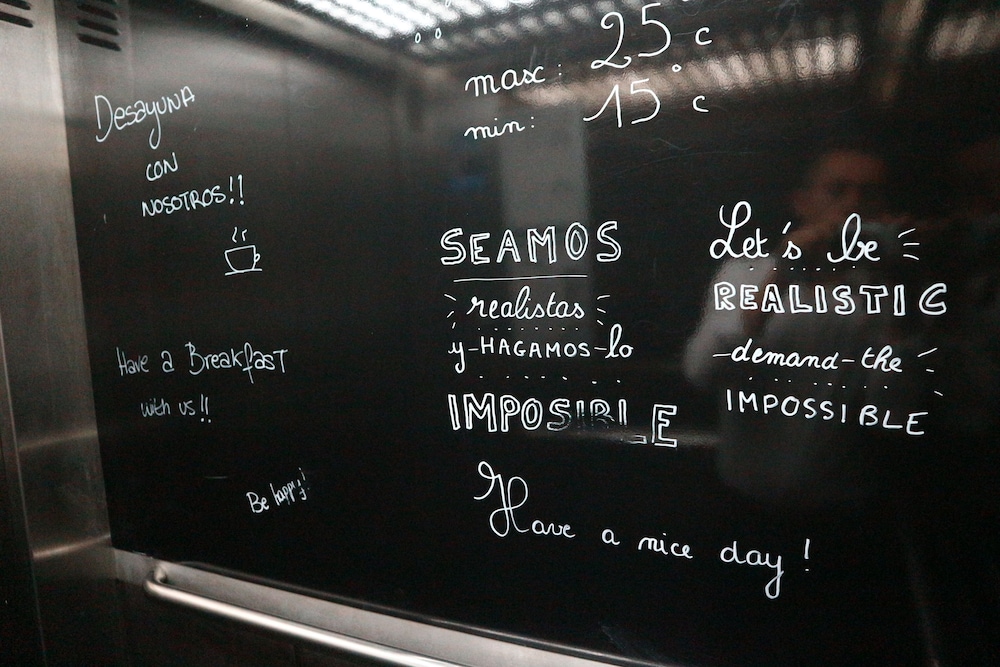 Desayuna
con
nosotros!!
Have a Breakfast
with us!!
Be happy!
max: 25° c
min: 15° c
SEAMOS
realistas
y-HAGAMOS-lo
IMPOSIBLE
Let's be
REALISTIC
-demand-the
IMPOSSIBLE
Have a nice day!